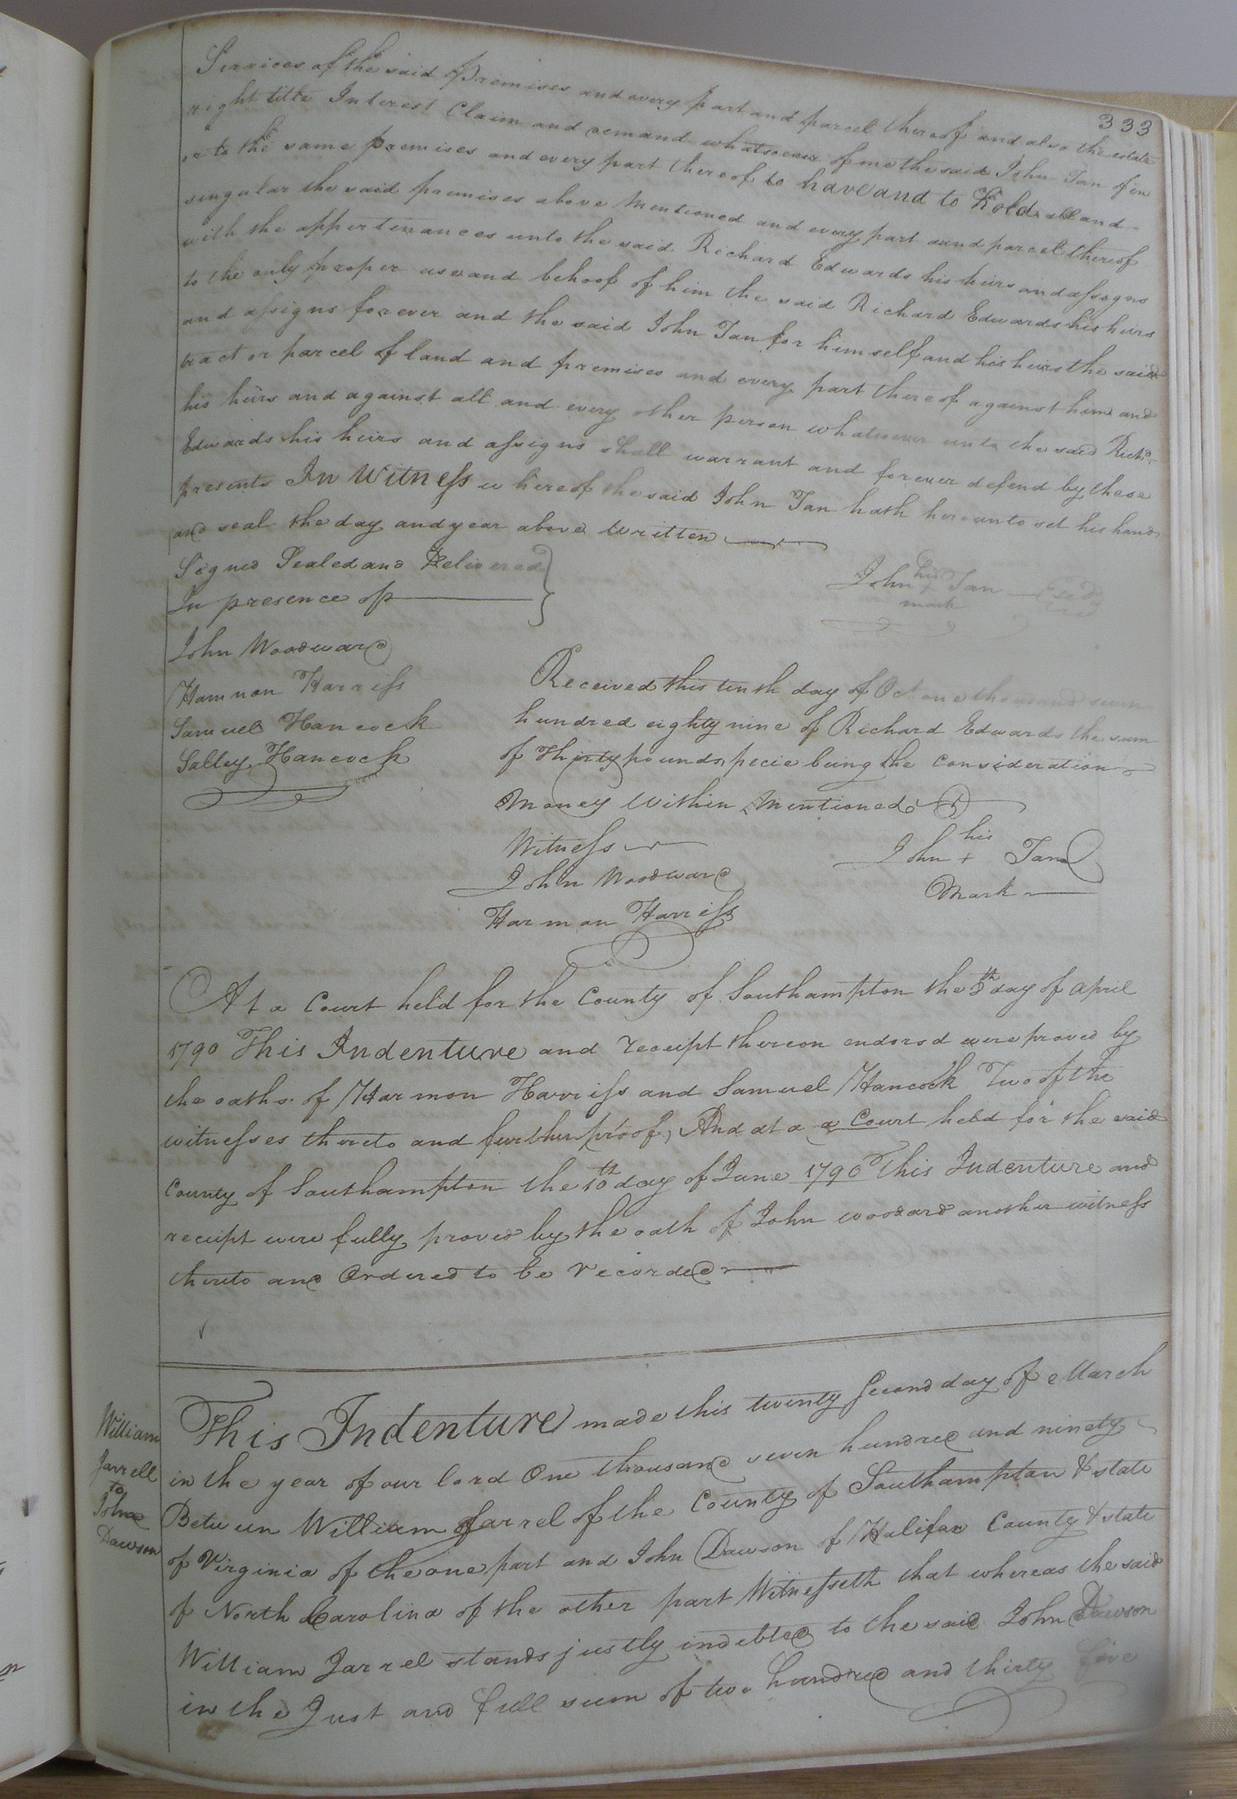 333
Services of the said premises and every part and parcel thereof and also the estate
right title Interest Claim and demand whatsoever of me the said John Tan of in
or to the same premises and every part thereof to have and to hold all and
singular the said premises above Mentioned and every part and parcel thereof
with the appertinances unto the said Richard Edwards his heirs and assigns
to the only proper use and behoof of him the said Richard Edwards his heirs
and assigns forever and the said John Tan for himself and his heirs the said
tract or parcel of land and premises and every part thereof against him and
his heirs and against all and every other person whatsoever unto the said Richd.
Edwards his heirs and assigns shall warrant and forever defend by these
presents In Witness whereof the said John Tan hath hereunto set his hand
and seal the day and year above written
Signed Sealed and Delivered
In presence of
John his + Tan
mark
John Woodward
Hamnon Harriss
Samuel Hancock
Salley Hancock
Received this tenth day of Oct one thousand seven
hundred eighty nine of Richard Edwards the sum
of Thirty pounds specie being the Consideration
Money Within Mentioned
Witness
John Woodward
Harmon Harriss
his
John + Tan
Mark
At a Court held for the County of Southampton the 8th day of april
1790 This Indenture and receipt thereon endorsd were proved by
the oaths of Harmon Harriss and Samuel Hancock Two of the
witnesses thereto and further proof, And at a a Court held for the said
County of Southampton the 10th day of June 1790 This Indenture and
receipt were fully proved by the oath of John woodard another witness
thereto and Ordered to be recorded
William
Jarrell
to
John
Dawson
This Indenture made this twenty second day of March
in the year of our lord One thousand seven hundred and ninety
Between William Jarrel of the County of Southampton & state
of Virginia of the one part and John Dawson of Halifax County & state
of North Carolina of the other part Witnesseth that whereas the said
William Jarrel stands justly indebted to the said John Dawson
in the Just and full sum of two hundred and thirty five